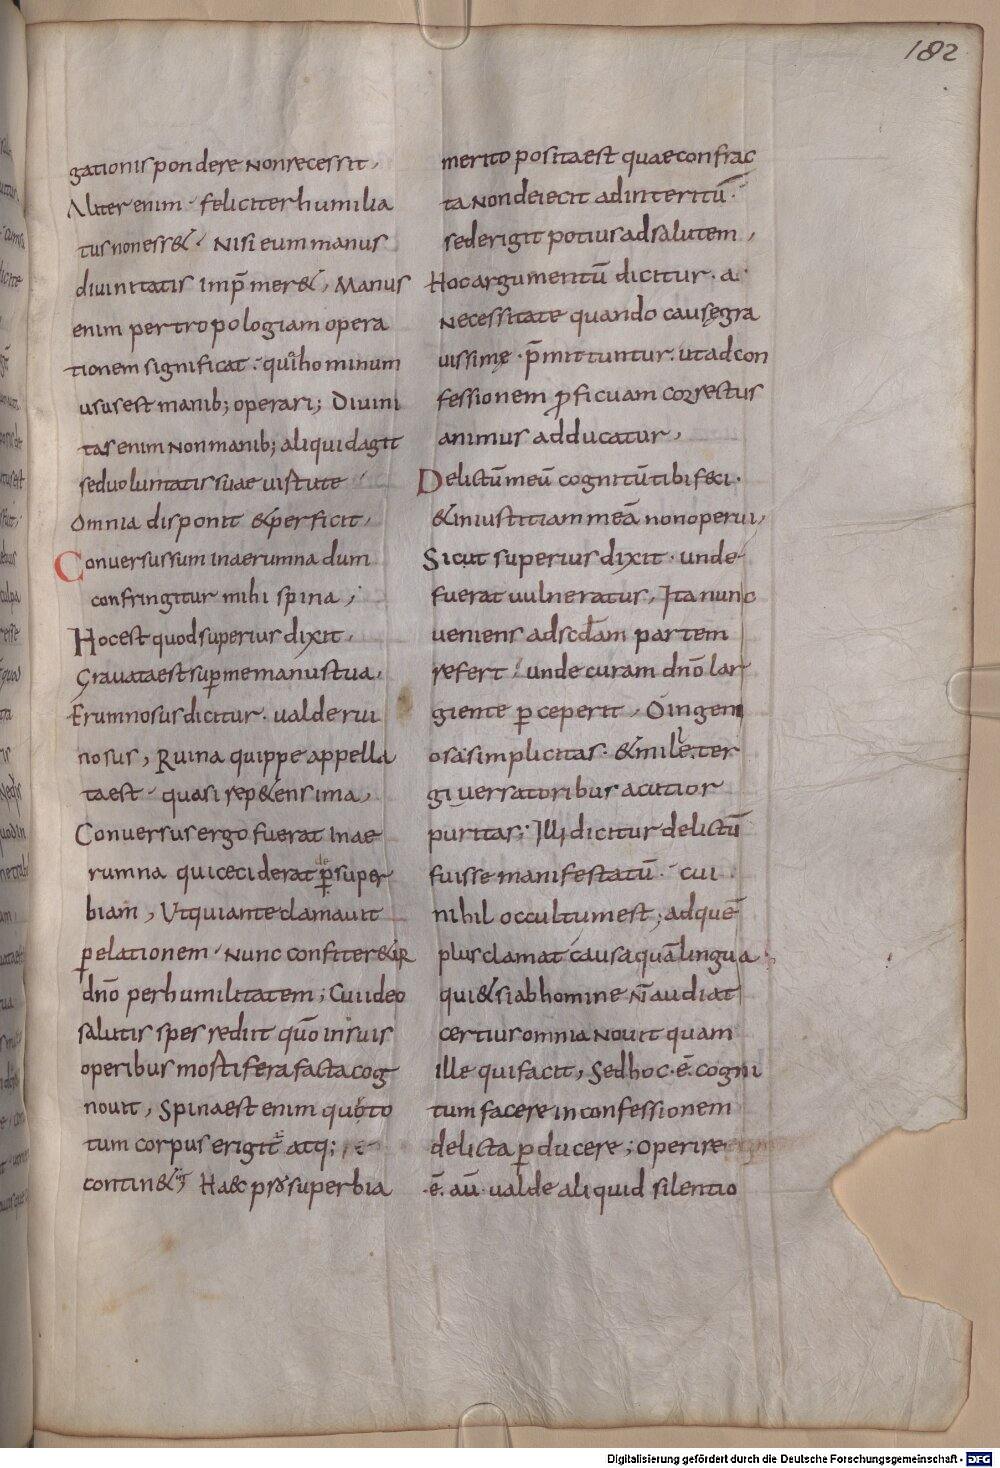 182
gationis pondere non recessit,
Aliter enim · feliciter humilia
tus non ess& · Nisi eum manus
diuinitatis imp̄mer&, Manus
enim per tropologiam opera
tionem significat · qui hominum
usus est manib; operari; Diuini
tas enim non manib; aliquid agit
sed uoluntatis suae uirtute
omnia disponit & perficit,
Conuersus sum in aerumna dum
confringitur mihi spina,
Hoc est quod superius dixit,
Grauata est sup̱ me manus tua,
Erumnosus dicitur · ualde rui
nosus, Ruina quippe appella
ta est · quasi rep&ens ima,
Conuersus ergo fuerat in ae
rumna qui ceciderat p̱ super
biam, Ut qui ante clamauit
p̱ elationem · Nunc confiter&ur
dn̄o per humilitatem; Cui ideo
salutis spes rediit quō in suis
operibus mortifera facta cog
nouit, Spina est enim quae to
tum corpus erigit atq;
contin& Haec pro superbia
merito posita est quae confrac
ta non deiecit ad interitū ·
sed erigit potius ad salutem,
Hoc argumentū dicitur · a ·
necessitate quando causę gra
uissimę · p̄mittuntur · ut ad con
fessionem ꝓficuam correctus
animus adducatur,
Delictū meū cognitū tibi feci ·
& iniustitiam meā non operui,
Sicut superius dixit · unde
fuerat uulneratus, Ita nunc
ueniens ad scdam partem
refert · unde curam dn̄o lar
giente p̱ceperit, O ingeni
osa simplicitas · & mille ter
giuersatoribus acutior
puritas; Illi dicitur delictū
fuisse manifestatū · cui
nihil occultum est; ad quē
plus clamat causa quā lingua
qui & si ab homine n̄ audiat
certius omnia nouit quam
ille qui facit, Sed hoc · ē · cogni
tum facere in confessionem
delicta p̱ducere; Operire
· ē · aū · ualde aliquid silentio
Digitalisierung gefördert durch die Deutsche Forschungsgemeinschaft - DFG